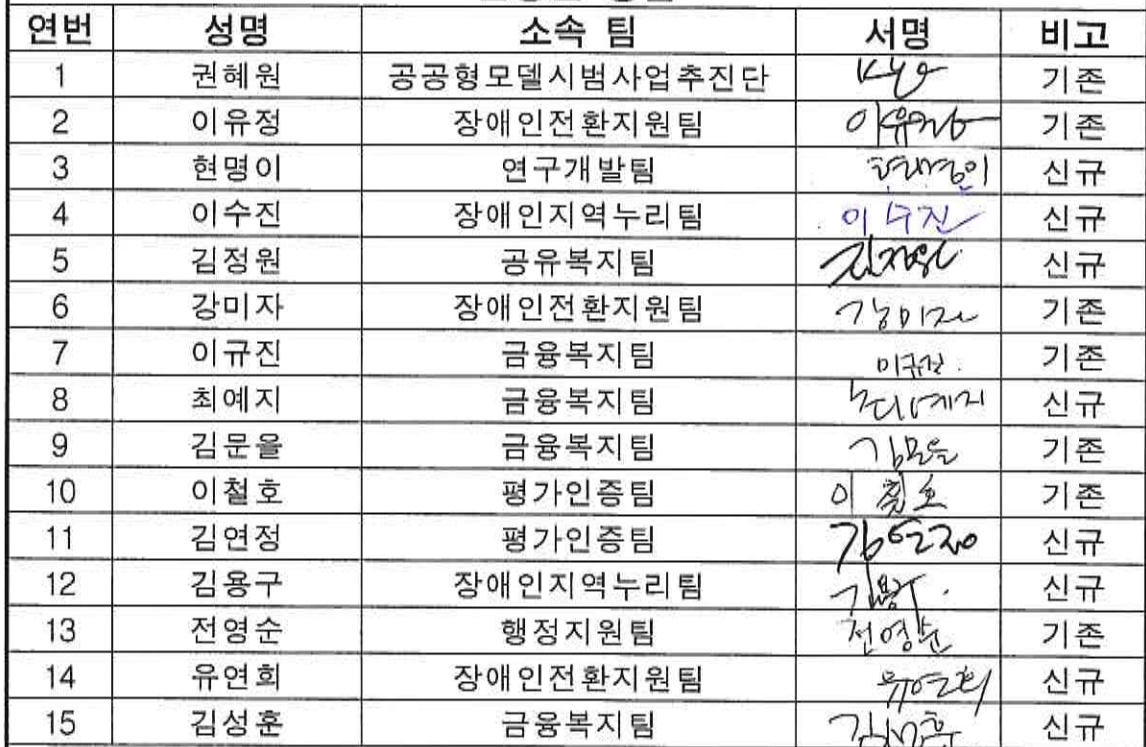 연번 성명 소속 팀 서명 비고
1 권혜원 공공형모델시범사업추진단 기존
2 이유정 장애인전환지원팀 이유정 기존
3 현명이 연구개발팀 현명이 신규
4 이수진 장애인지역누리팀 이수진 신규
5 김정원 공유복지팀 김정원 신규
6 강미자 장애인전환지원팀 강미자 기존
7 이규진 금융복지팀 이규진 기존
8 최예지 금융복지팀 최예지 신규
9 김문을 금융복지팀 김문을 기존
10 이철호 평가인증팀 이철호 기존
11 김연정 평가인증팀 김연정 신규
12 김용구 장애인지역누리팀 신규
13 전영순 행정지원팀 전영순 기존
14 유연희 장애인전환지원팀 유연희 신규
15 김성훈 금융복지팀 김성훈 신규